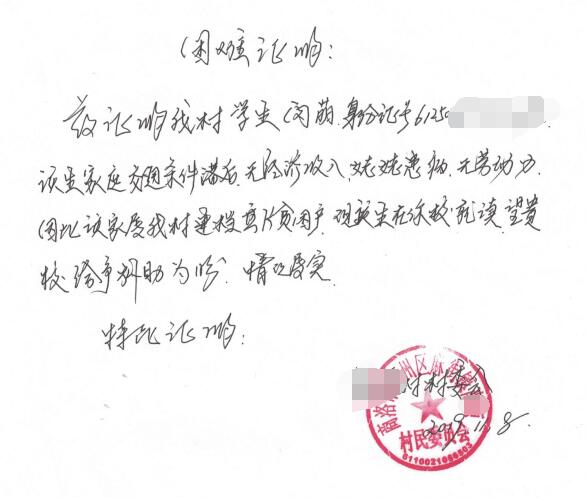 困难证明:
兹证明我村学生闵萌.身份证号6125
该生家庭交通条件滞后.无经济收入.患病.无劳动力.
因此该家属我村建档立卡贫困户.现该生在你校就读.望贵
校给予补助为盼.情况属实
特此证明:
村村委会
11.8
商洛 州区
村民委员会